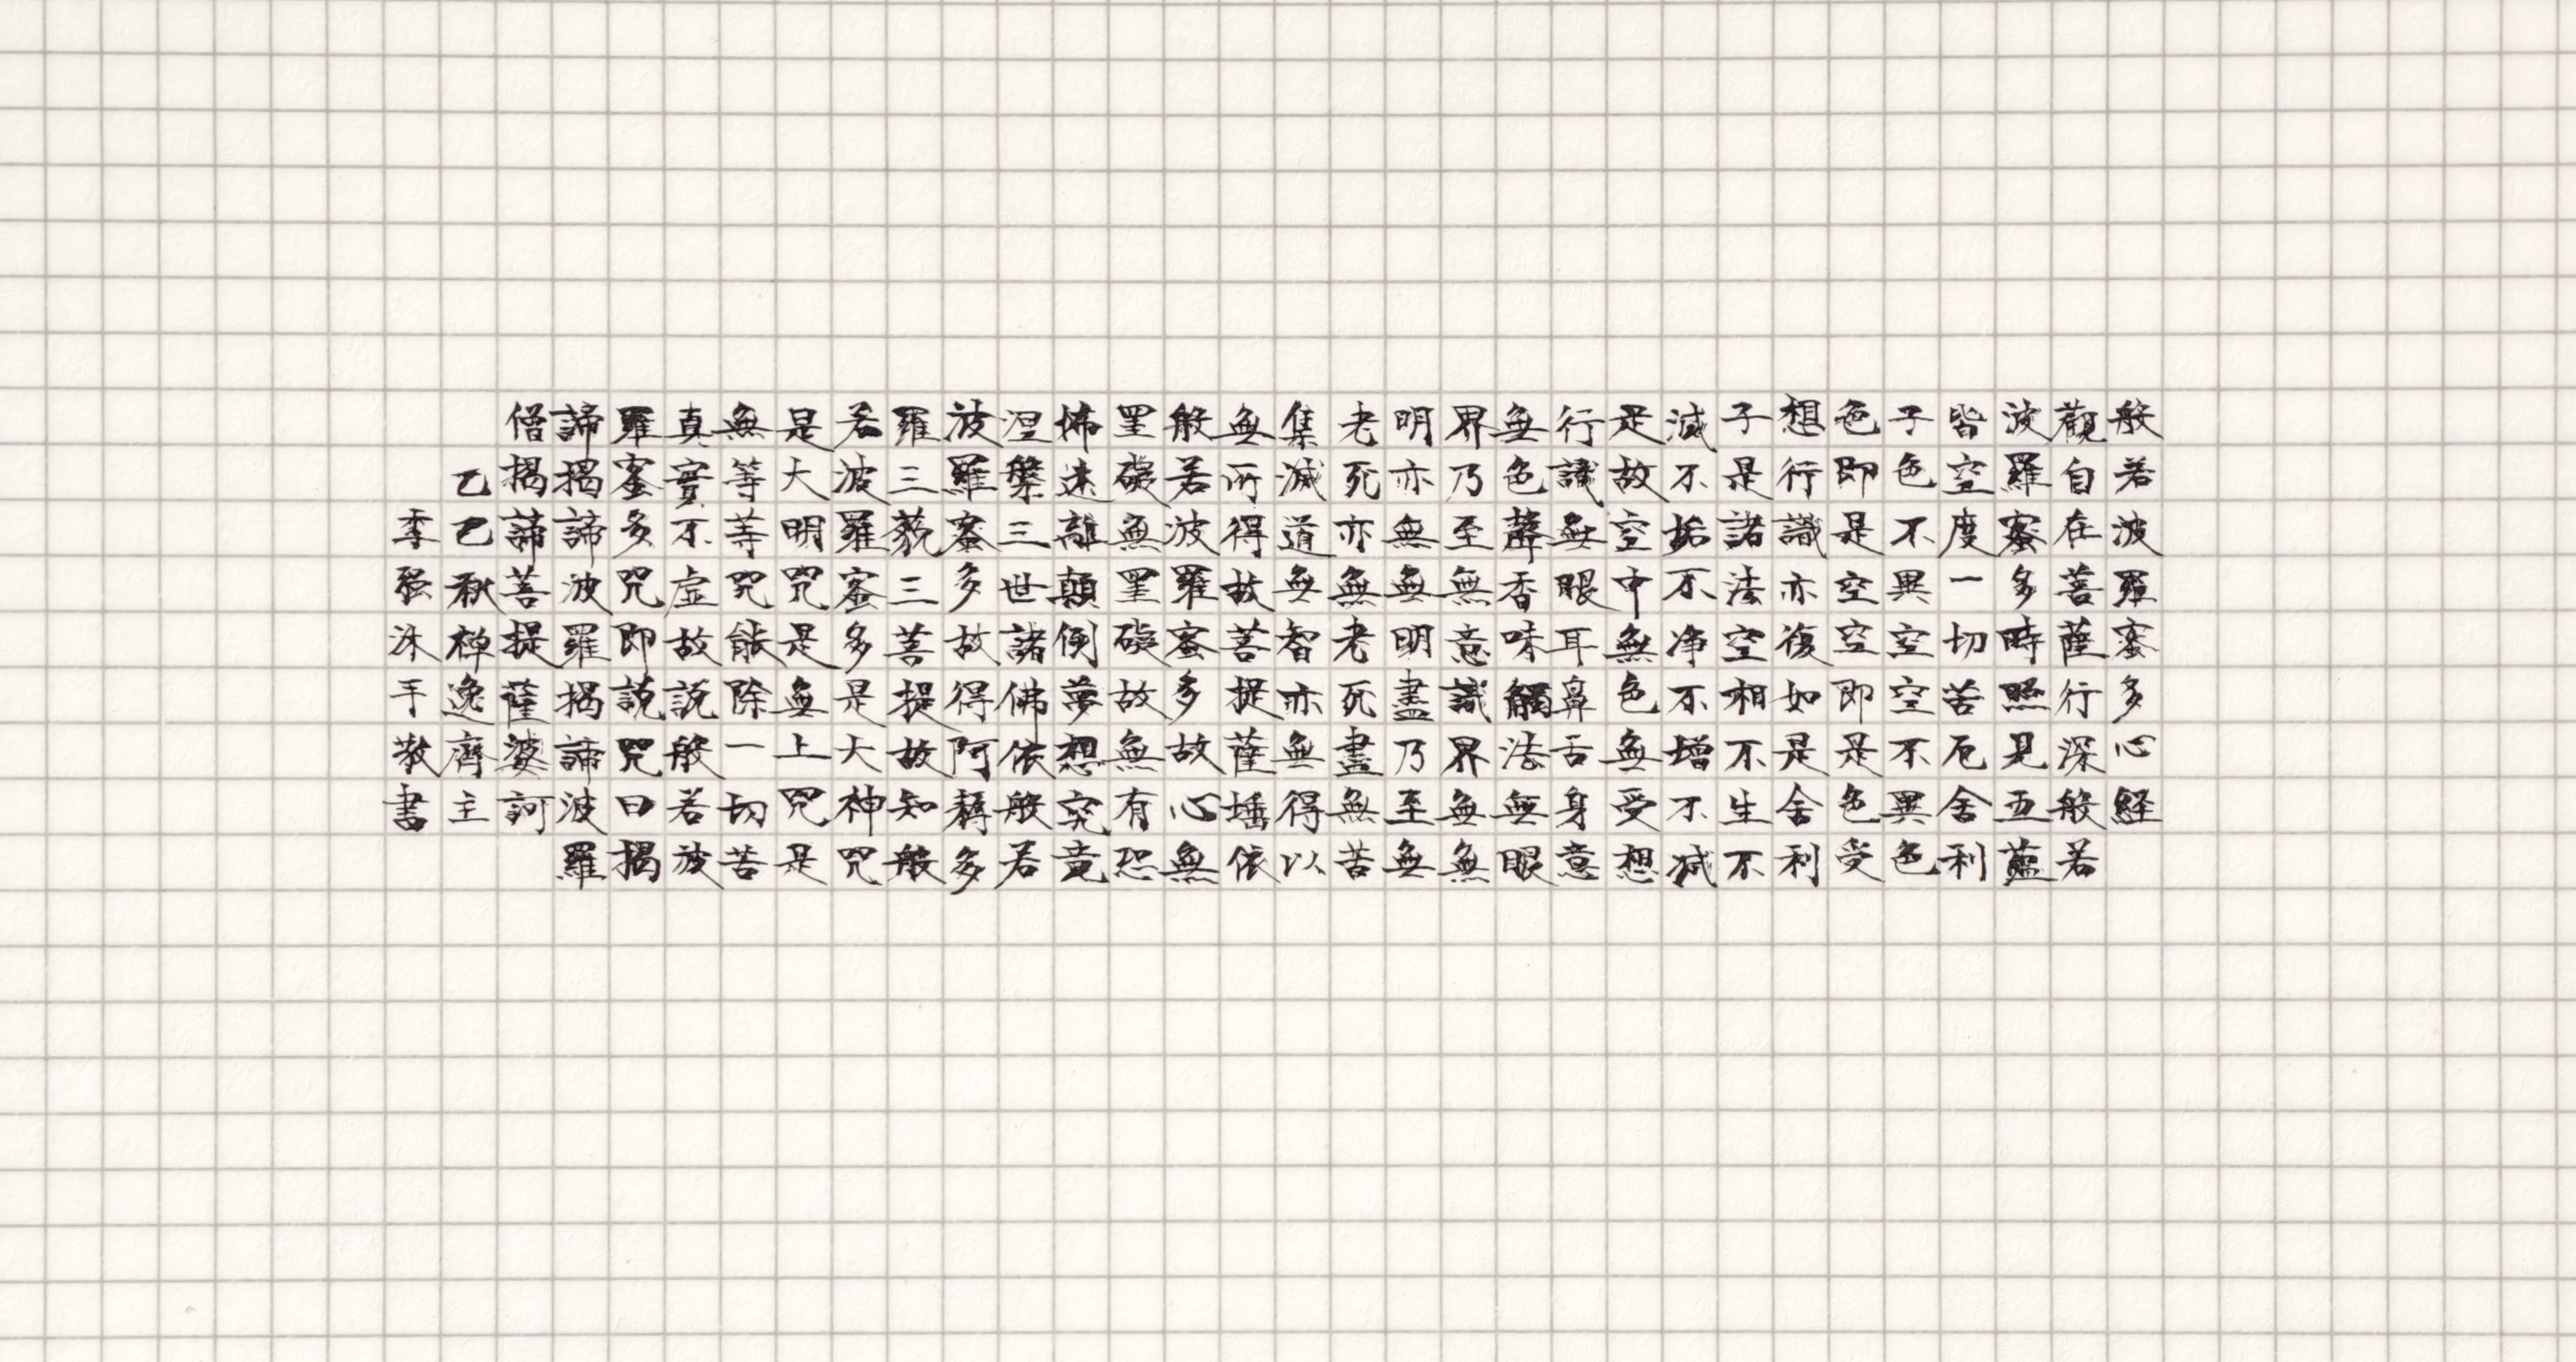 般若波羅蜜多心経
觀自在菩薩行深般若
波羅蜜多時照見五蘊
皆空度一切苦厄舍利
子色不異空空不異色
色即是空空即是色受
想行識亦復如是舍利
子是諸法空相不生不
滅不垢不净不增不減
是故空中無色無受想
行識無眼耳鼻舌身意
無色聲香味觸法無眼
界乃至無意識界無無
明亦無無明盡乃至無
老死亦無老死盡無苦
集滅道無智亦無得以
無所得故菩提薩埵依
般若波羅蜜多故心無
罣礙無罣礙故無有恐
怖遠離顛倒夢想究竟
涅槃三世諸佛依般若
波羅蜜多故得阿耨多
羅三藐三菩提故知般
若波羅蜜多是大神咒
是大明咒是無上咒是
無等等咒能除一切苦
真實不虛故說般若波
羅蜜多咒即說咒曰揭
諦揭諦波羅揭諦波羅
僧揭諦菩提薩婆訶
乙巳秋禅逸齊主
李强沐手敬書